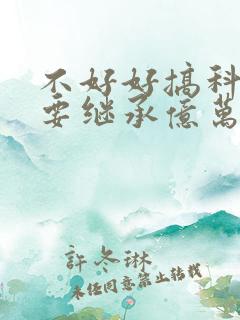 不好好搞科
要继承億萬
許冬琳
未经同意禁止转载